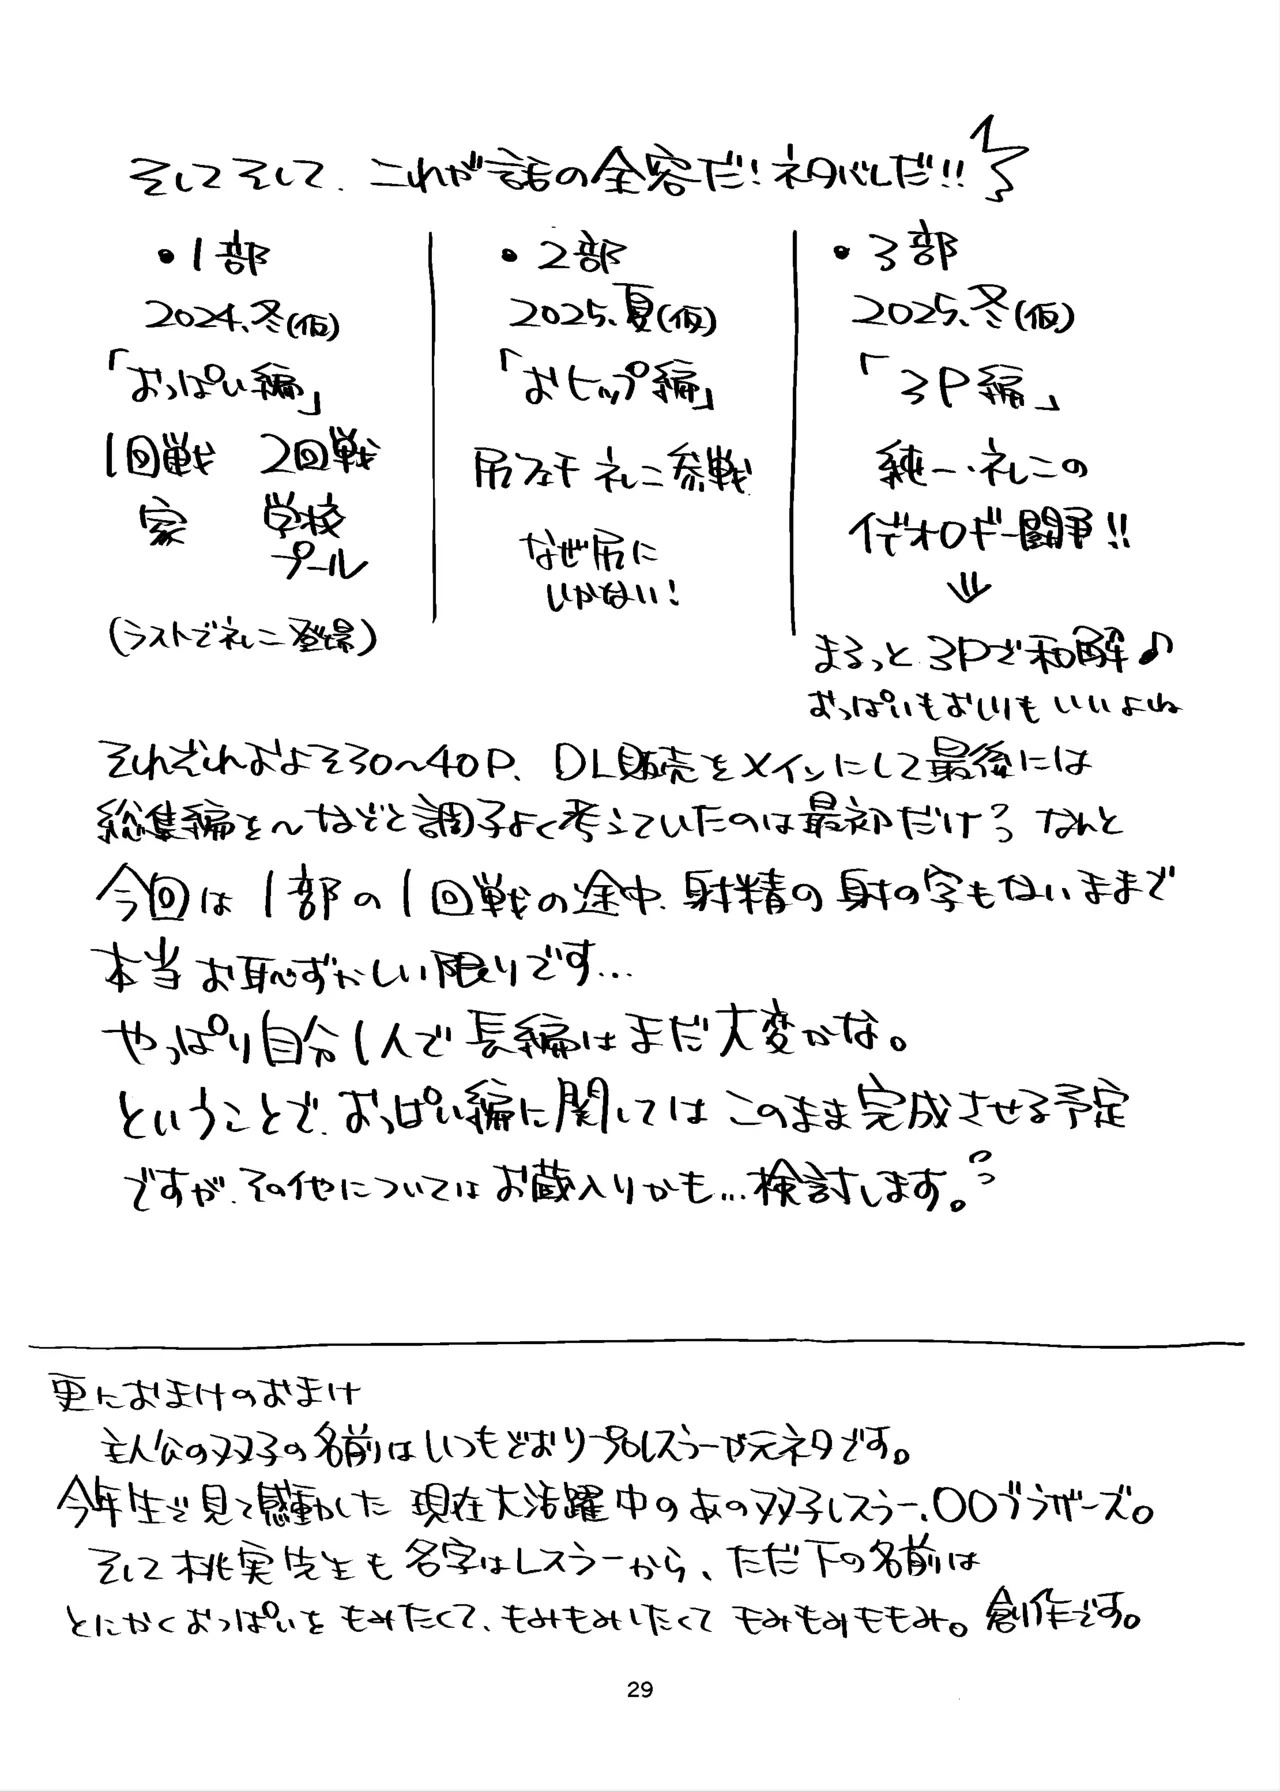 そしてそして、これが話の全容だ!ネタバレだ!!
・1部
2024.冬(仮)
「おっぱい編」
1回戦 2回戦
家 学校
プール
(ラストでネレニ登場)
・2部
2025.夏(仮)
「おヒップ編」
尻フェチ ネレニ参戦
なぜ尻に
いかない!
・3部
2025.冬(仮)
「3P編」
純一・ネレニの
イデオロギー闘争!!
まるっと3Pで和解♪
おっぱいもお尻もいいよね
それぞれおよそ30〜40P、DL販売をメインにして最後には
総集編を〜などと調子よく考えていたのは最初だけ?なんと
今回は1部の1回戦の途中、射精の射の字もないままで
本当お恥ずかしい限りです…
やっぱり自分1人で長編はまだ大変かな。
ということで、おっぱい編に関してはこのまま完成させる予定
ですが、その他についてはお蔵入りかも…検討します。
更におまけのおまけ
主人公の双子の名前はいつもどおりプロレスラーが元ネタです。
今年生で見て感動した現在大活躍中のあの双子レスラー、〇〇ブラザーズ。
そして桃実先生も名字はレスラーから、ただ下の名前は
とにかくおっぱいをもみたくて、もみもみいたくてもみもみももみ。創作です。
29